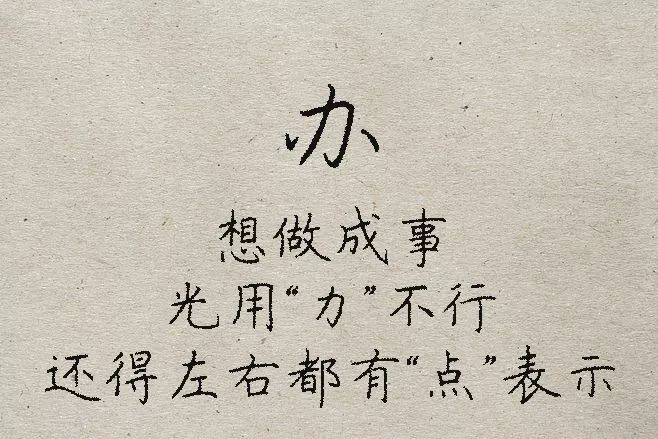 办
想做成事
光用“力”不行
还得左右都有“点”表示